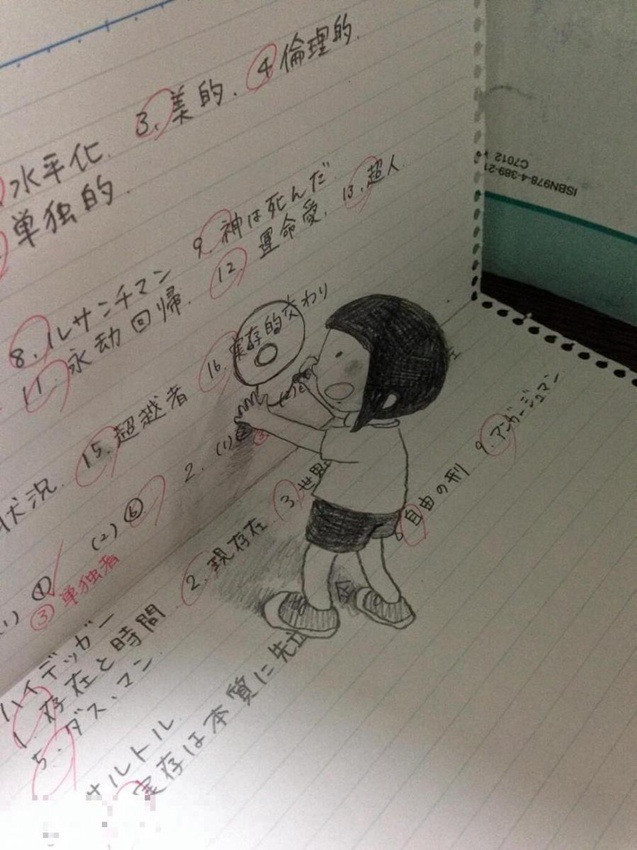 3. 美的. ④ 倫理的.
水平化.
単独的.
9. 神は死んだ
8. ルサンチマン 12 運命愛. 13. 超人
11. 永劫回帰.
16. 実存的交わり
15. 超越者
状況.
2. (1)
(2) ⑥
③ 単独者
ハイデッガー
1. 存在と時間 2. 現存在 3. 世界
5. ダス・マン
サルトル
実存は本質に先立
8 自由の刑 9. アンガージュマン
ISBN978-4-389-21
C7012